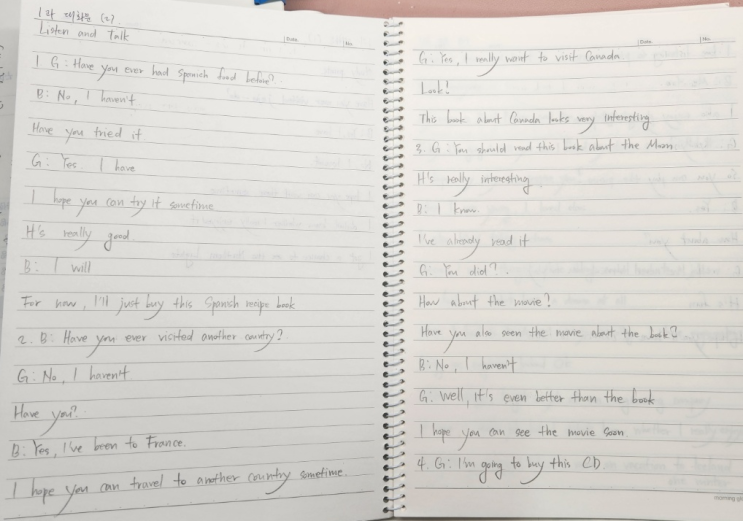 1과 대화문 (2).
Listen and Talk
1 G: Have you ever had Spanish food before?
B: No, I haven't
Have you tried it
G: Yes I have
I hope you can try it sometime
It's really good
B: I will
For now, I'll just buy this Spanish recipe book
2. B: Have you ever visited another country?
G: No, I haven't
Have you?
B: Yes, I've been to France.
I hope you can travel to another country sometime.
Date
No.
G: Yes, I really want to visit Canada
Look!
This book about Canada looks very interesting
3. G: You should read this book about the Moon
It's really interesting
B: I know
I've already read it
G: You did?
How about the movie?
Have you also seen the movie about the book?
B: No, I haven't
G: Well, it's even better than the book
I hope you can see the movie soon
4. G: I'm going to buy this CD